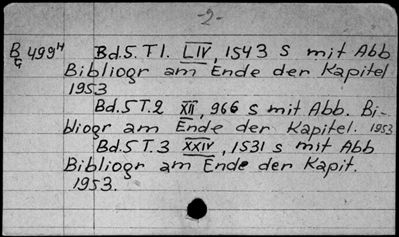 -2-
B/G 499H Bd.5. T1. LIV, 1543 S mit Abb
Bibliogr am Ende der Kapitel
1953
Bd.5 T.2 XII, 966 S mit Abb. Bi-
bliogr am Ende der Kapitel. 1953
Bd.5 T.3 XXIV, 1531 s mit Abb
Bibliogr am Ende der Kapit.
1953.